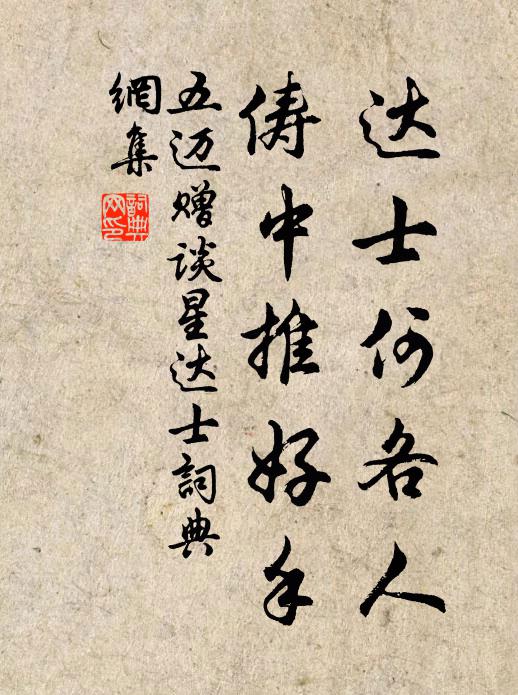 达士何各人
俦中推好手
五迈赠谈星达士詞典
網集
詞典
网印